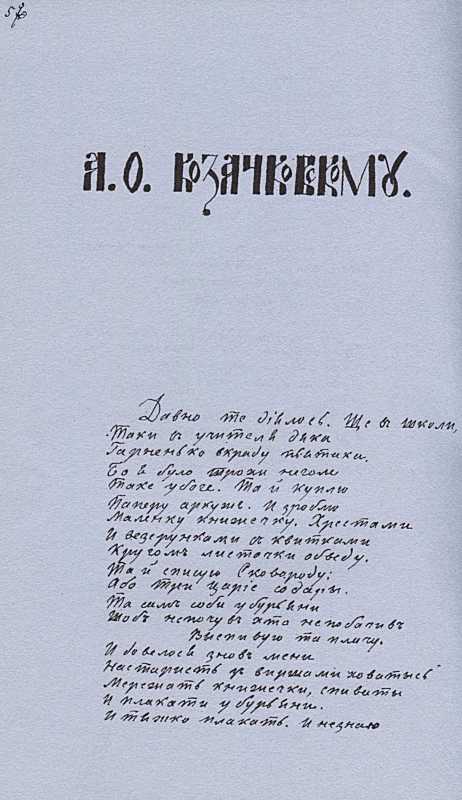 А. О. КОЗАЧКОВСКОМУ.
Давно те діялось. Ще в школі,
Таки в учителя дяка
Гарненько вкраду пьятака.
Бо я було трохи не голе
Таке убоге. Та й куплю
Паперу аркушъ. И зроблю
Маленьку книжечку. Хрестами
И везерунками съ квитками
Кругомъ листочки обведу.
Та й списую Сковороду;
Або три царіе со дары.
Та самъ соби у бурьяни
Щобъ непочувъ хто непобачивъ
Виспивую та плачу.
И довелося зновъ мени
На старисть зъ виршами ховатысь
Мережать книжечки, спивати
И плакати у бурьяни.
И тяжко плакать. И незнаю